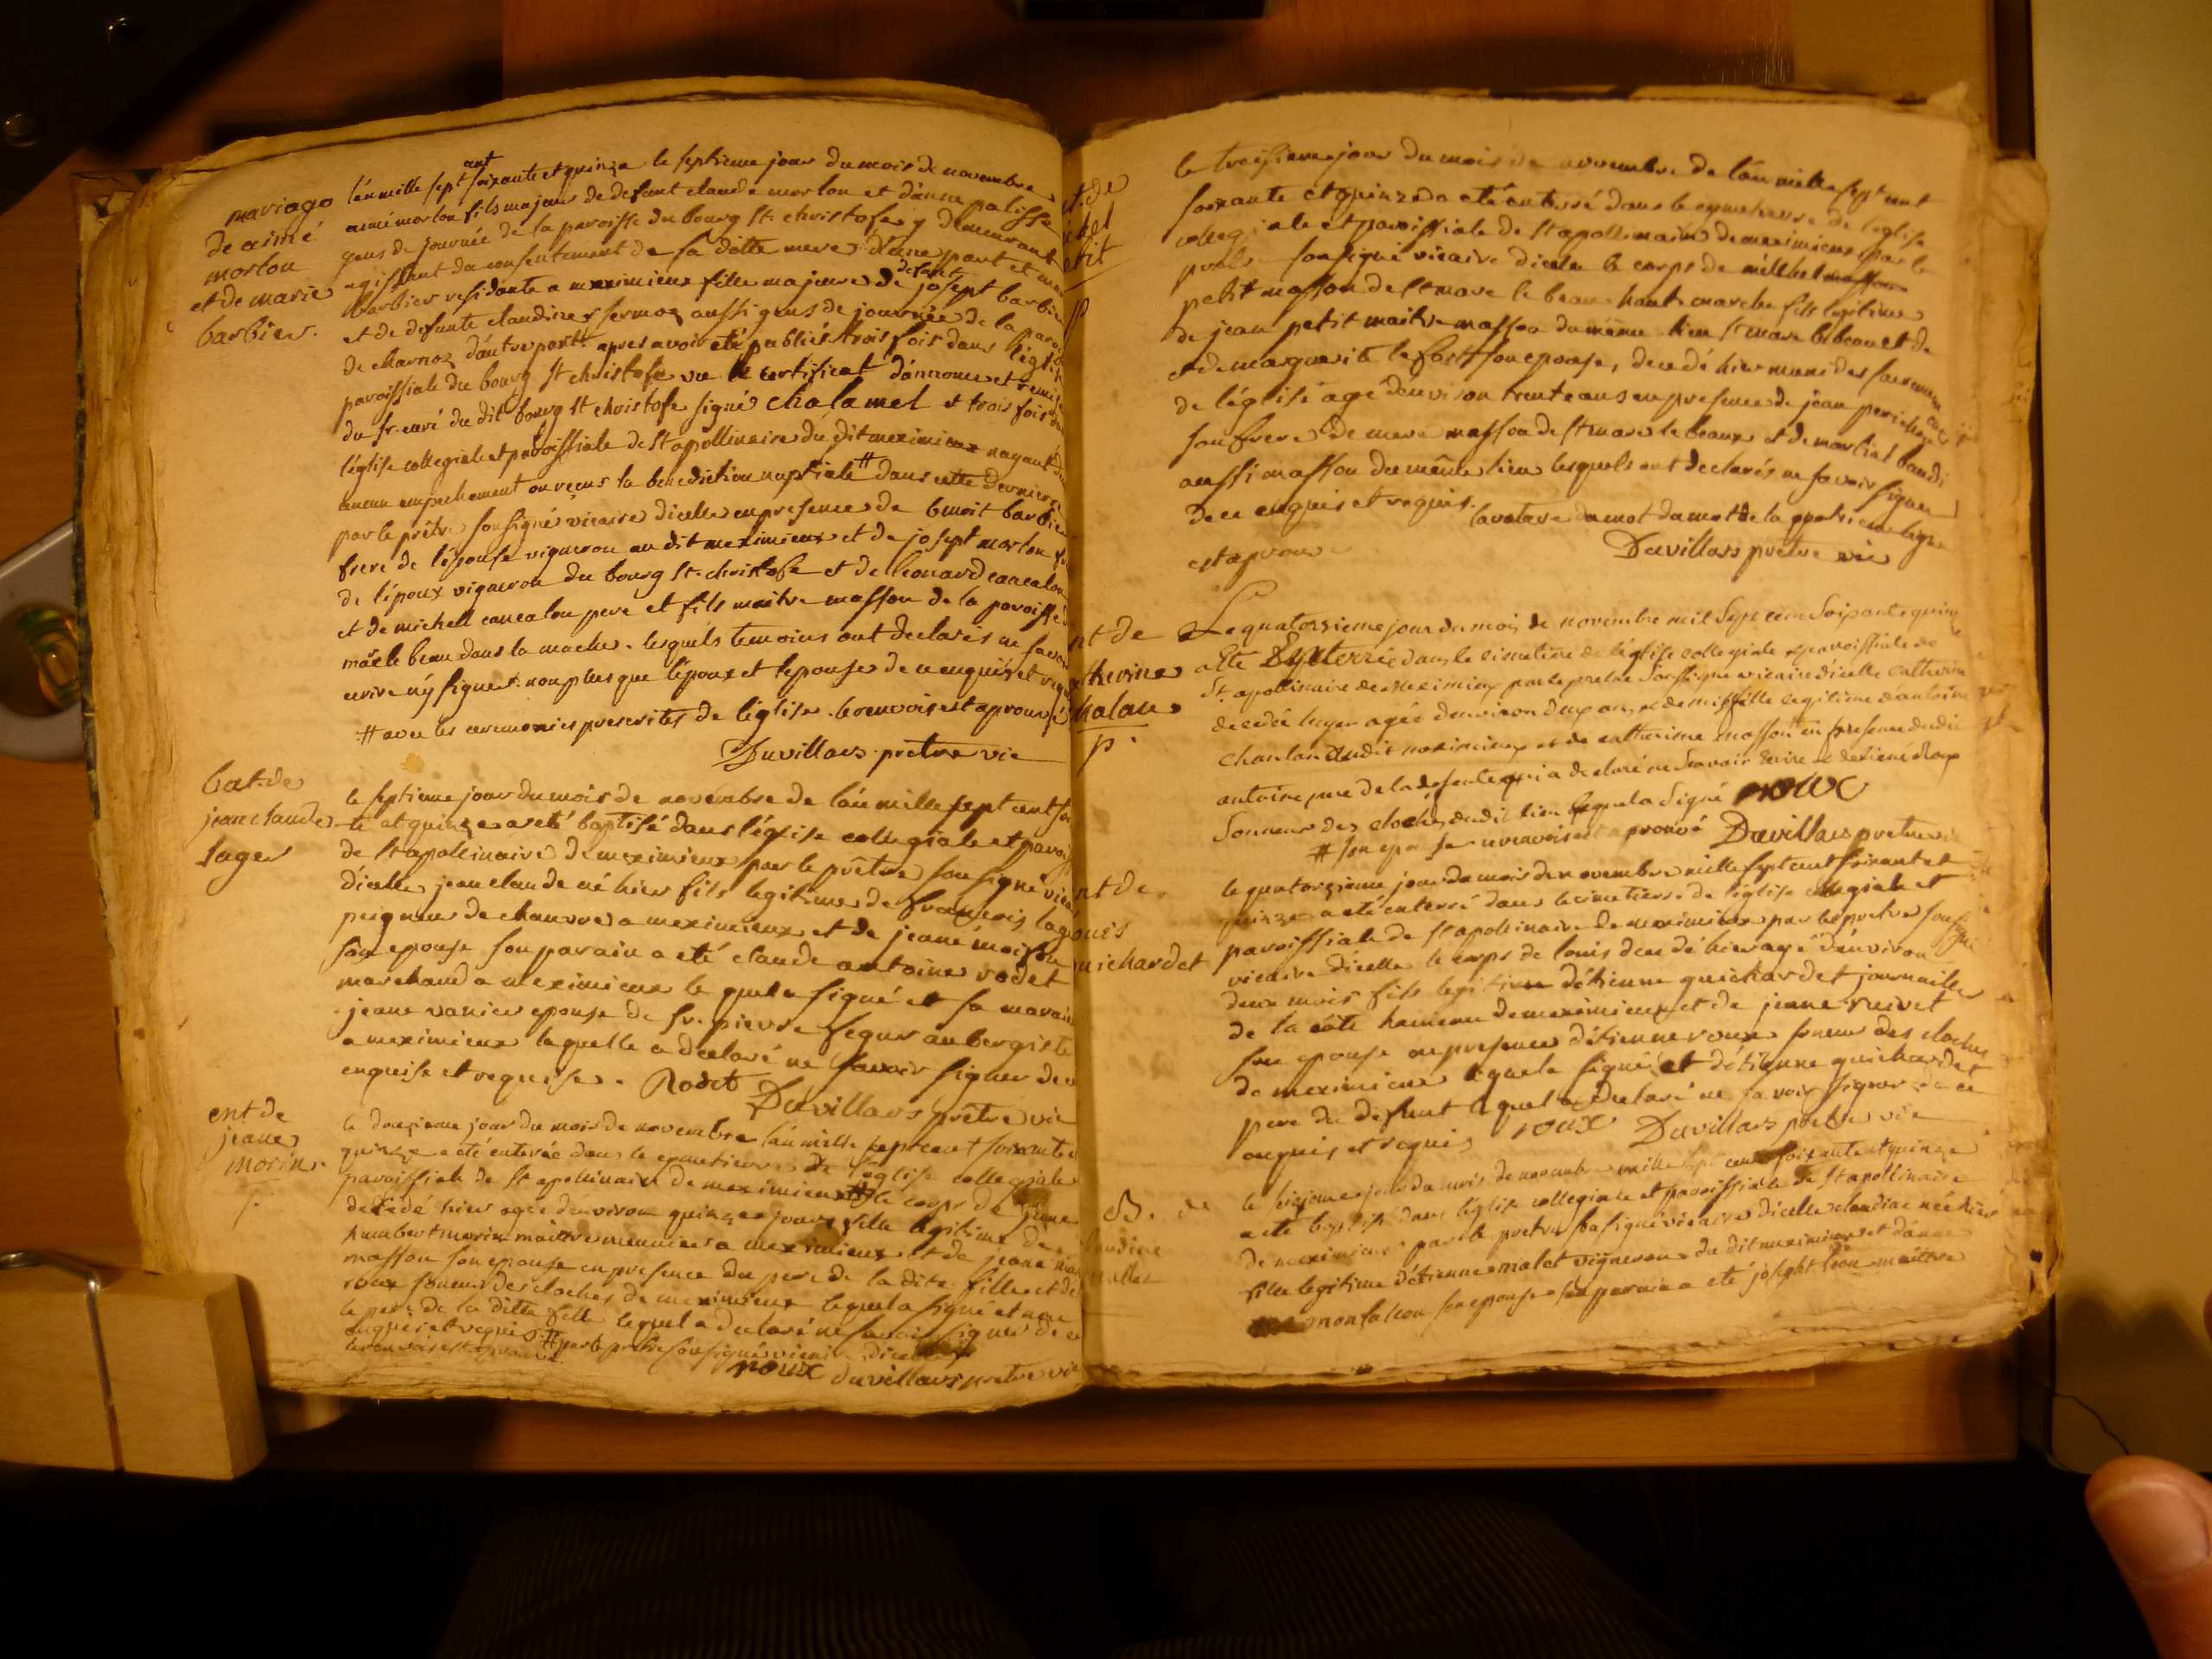 mariage
de aimé
morlon
et de marie
barbier.
l'an mille sept cent soixante et quinze le septieme jour du mois de novembre
aimé morlon fils majeur de defunt claude morlon et d'anne palisse
gens de journée de la paroisse du bourg st christofe y demeurant
agissant du consentement de sa ditte mere d'une part et marie
barbier residante a meximieux fille majeure de defunt josept barbier
et de defunte claudine sermoz aussi gens de journée de la paroisse
de charnoz d'autre part apres avoir eté publiés trois fois dans l'église
paroissiale du bourg st christofe vu le certificat d'annonces et remise
du sr curé du dit bourg st christofe signé chalamel et trois fois dans
l'église collegiale et paroissiale de st apollinaire du dit meximieux nayant
aucun empechement ont reçus la benediction nuptiale # dans cette derniere
par le prêtre sousigné vicaire d'icelle en presence de benoit barbier
frere de l'épouse vigneron au dit meximieux et de josept morlon frere
de l'époux vigneron du bourg st christofe et de leonard cancalon
et de michell cancalon pere et fils maitre masson de la paroisse de
marc le beau dans la marche. lesquels temoins ont declarés ne savoir
ecrire n'y signer non plus que l'époux et l'epouse de ce enquis et requis
# avec les ceremonies prescrites de l'église. le renvoi est aprouvé
Duvillars prêtre vic
bat. de
jean claude
lager
le septieme jour du mois de novembre de l'an mille sept cent soi
te et quinze a eté baptisé dans l'église collegiale et parois
de st apollinaire de meximieux par le prêtre sousigné vicaire
d'icelle jean claude né hier fils legitime de françois lager
peigneur de chanvre a meximieux et de jeane
son epouse son parain a eté claude antoine rodet
marchand a meximieux le quel a signé et sa maraine
jeane vanier epouse de sr. pierre segur aubergiste
a meximieux laquelle a declaré ne savoir signer de ce
enquise et requise. Rodet
Duvillars prêtre vic
ent de
jeane
morin.
le douzieme jour du mois de novembre l'an mille sept cent soixante
quinze a eté enterée dans le cimetiere de l'église collegiale
paroissiale de st apollinaire de meximieux # le corps de jeane
decedé hier agée d'environ quinze jours fille legitime de
humbert morin maitre meunier a meximieux et de jeane
masson son epouse en presence du pere de la dite fille et de
roux soneur des cloches de meximieux lequel a signé et non
le pere de la ditte fille lequel a declaré ne savoir signer de ce
enquis et requis. # par le prêtre sousigné vicaire d'icelle
le renvoi est aprouvé.
roux duvillars prêtre vic
le troisieme jour du mois de novembre de l'an mille sept cent
soixante et quinze a eté enterré dans le cymetierre de l'église
collegiale et paroissiale de st apollinaire de meximieux par le
prêtre sousigné vicaire d'icelle le corps de michel masson
petit masson de st marc le beau haute marche fils legitime
de jean petit maitre masson du même lieu st marc le beau et de
et de marguerite le fort son epouse, decedé hier muni des sacremens
de l'église agé d'environ trente ans en presence de jean
son frere de mere masson de st marc le beau et de martial baudi
aussi masson du même lieu lesquels ont declarés ne savoir signer
de ce enquis et requis. la rature du mot du mot de la quatrieme ligne
est aprouvé
Duvillars prêtre vic
nt de
therine
halan
p.
Le quatorsieme jour du mois de novembre mil sept cent soixante quinze
a Eté Enterrée dans le cimetiere de l'église collegiale et paroissiale de
St. apollinaire de Meximieux par le pretre Soussigné vicaire d'icelle catherine
decedée hyer agée d'environ deux ans et demis fille legitime d'antoine
chanlan dudit meximieux et de catherine masson # en presence dudit
antoine pere de la defunte qui a declaré ne Scavoir Ecrire et d'etiene Roux
Sonneur des cloches dudit lieu lequel a Signé roux
# son epouse le renvoi est aprouvé Duvillars prêtre vic
nt de
ouis
uichardet
le quatorzieme jour du mois de novembre mille sept cent soixante et
quinze a eté enterré dans le cimetiere de l'église collegiale et
paroissiale de st apollinaire de meximieux par le prêtre sousigné
vicaire d'icelle le corps de louis decedé hier agé d'environ
deux mois fils legitime d'étienne guichardet journaillier
de la côte hameau de meximieux et de jeane ruivet
son epouse en presence d'étienne roux soneur des cloches
de meximieux lequel a signé et d'étienne guichardet
pere du defunt lequel a declaré ne savoir signer de ce
enquis et requis roux Duvillars prêtre vic
B. de
laudine
mallet
le seizieme jour du mois de novembre mille sept cent soixante et quinze
a eté baptisé dans l'église collegiale et paroissiale de st apollinaire
de meximieux par le pretre sousigné vicaire d'icelle claudine née hier
fille legitime d'étienne malet vigneron du dit meximieux et d'anne
monfalcon son epouse son parain a eté josepht léon maitre